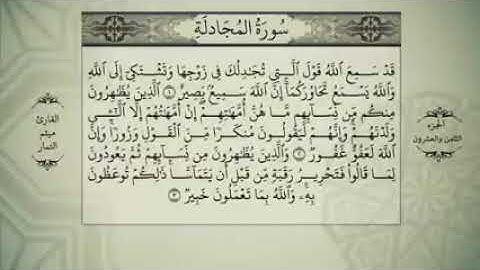 سُورَةُ المُجَادلَةِ
قَدْ سَمِعَ اللَّهُ قَوْلَ الَّتِي تُجَٰدِلُكَ فِي زَوْجِهَا وَتَشْتَكِي إِلَى اللَّهِ
وَاللَّهُ يَسْمَعُ تَحَاوُرَكُمَا إِنَّ اللَّهَ سَمِيعٌ بَصِيرٌ ١ الَّذِينَ يُظَٰهِرُونَ
مِنكُم مِّن نِّسَآئِهِم مَّا هُنَّ أُمَّهَٰتِهِمْ إِنْ أُمَّهَٰتُهُمْ إِلَّا الَّٰٓـِٔي
وَلَدْنَهُمْ وَإِنَّهُمْ لَيَقُولُونَ مُنكَرًا مِّنَ الْقَوْلِ وَزُورًا وَإِنَّ
اللَّهَ لَعَفُوٌّ غَفُورٌ ٢ وَالَّذِينَ يُظَٰهِرُونَ مِن نِّسَآئِهِمْ ثُمَّ يَعُودُونَ
لِمَا قَالُوا فَتَحْرِيرُ رَقَبَةٍ مِّن قَبْلِ أَن يَتَمَآسَّا ذَٰلِكُمْ تُوعَظُونَ
بِهِۦ وَاللَّهُ بِمَا تَعْمَلُونَ خَبِيرٌ ٣
الجزء
الثامن والعشرون
القارئ
ميثم
التمار